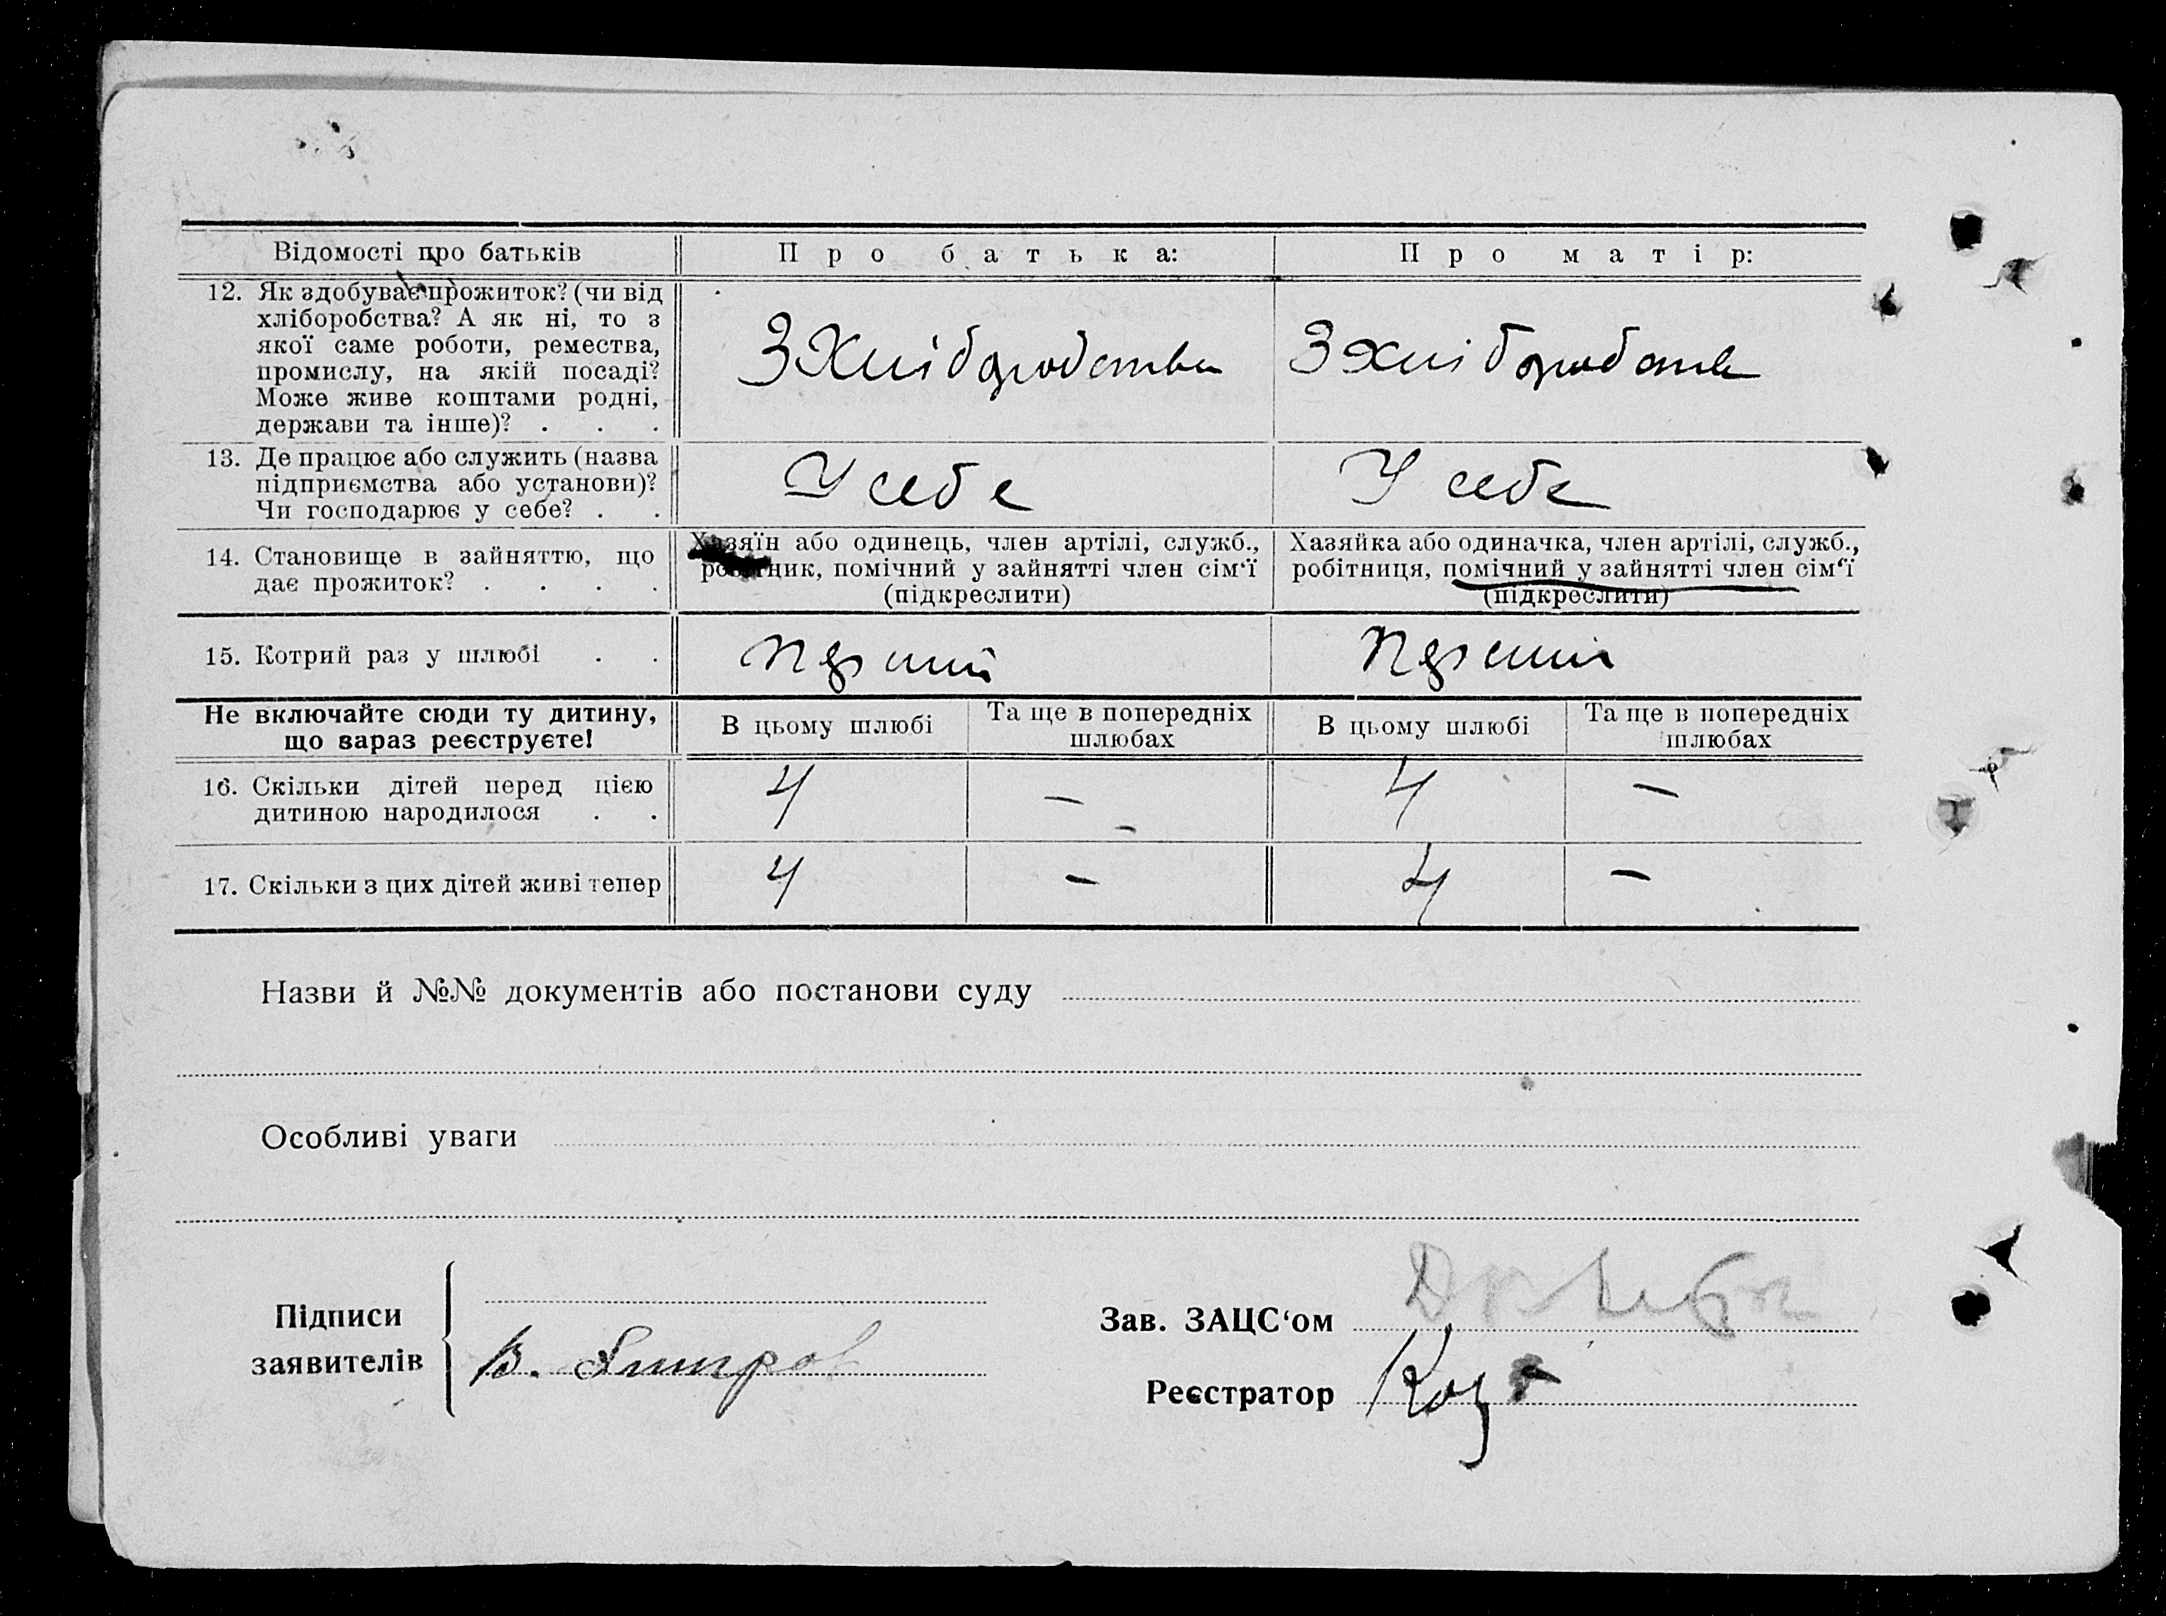 Відомості про батьків
Про батька:
Про матір:
12. Як здобуває прожиток? (чи від
хліборобства? А як ні, то з
якої саме роботи, ремества,
промислу, на якій посаді?
Може живе коштами родні,
держави та інше)? . . .
З Хліборобства
З хліборобства
13. Де працює або служить (назва
підприємства або установи)?
Чи господарює у себе? . .
У себе
У себе
14. Становище в зайняттю, що
дає прожиток? . . . .
Хазяїн або одинець, член артілі, служб.,
робітник, помічний у зайнятті член сім‘ї
(підкреслити)
Хазяйка або одиначка, член артілі, служб.,
робітниця, помічний у зайнятті член сім‘ї
(підкреслити)
15. Котрий раз у шлюбі . .
перший
Перший
Не включайте сюди ту дитину,
що зараз реєструєте!
В цьому шлюбі
Та ще в попередніх
шлюбах
В цьому шлюбі
Та ще в попередніх
шлюбах
16. Скільки дітей перед цією
дитиною народилося . .
4 — 4 —
17. Скільки з цих дітей живі тепер
4 — 4 —
Назви й №№ документів або постанови суду
Особливі уваги
Підписи
заявителів
В.
Зав. ЗАЦС‘ом
Реєстратор